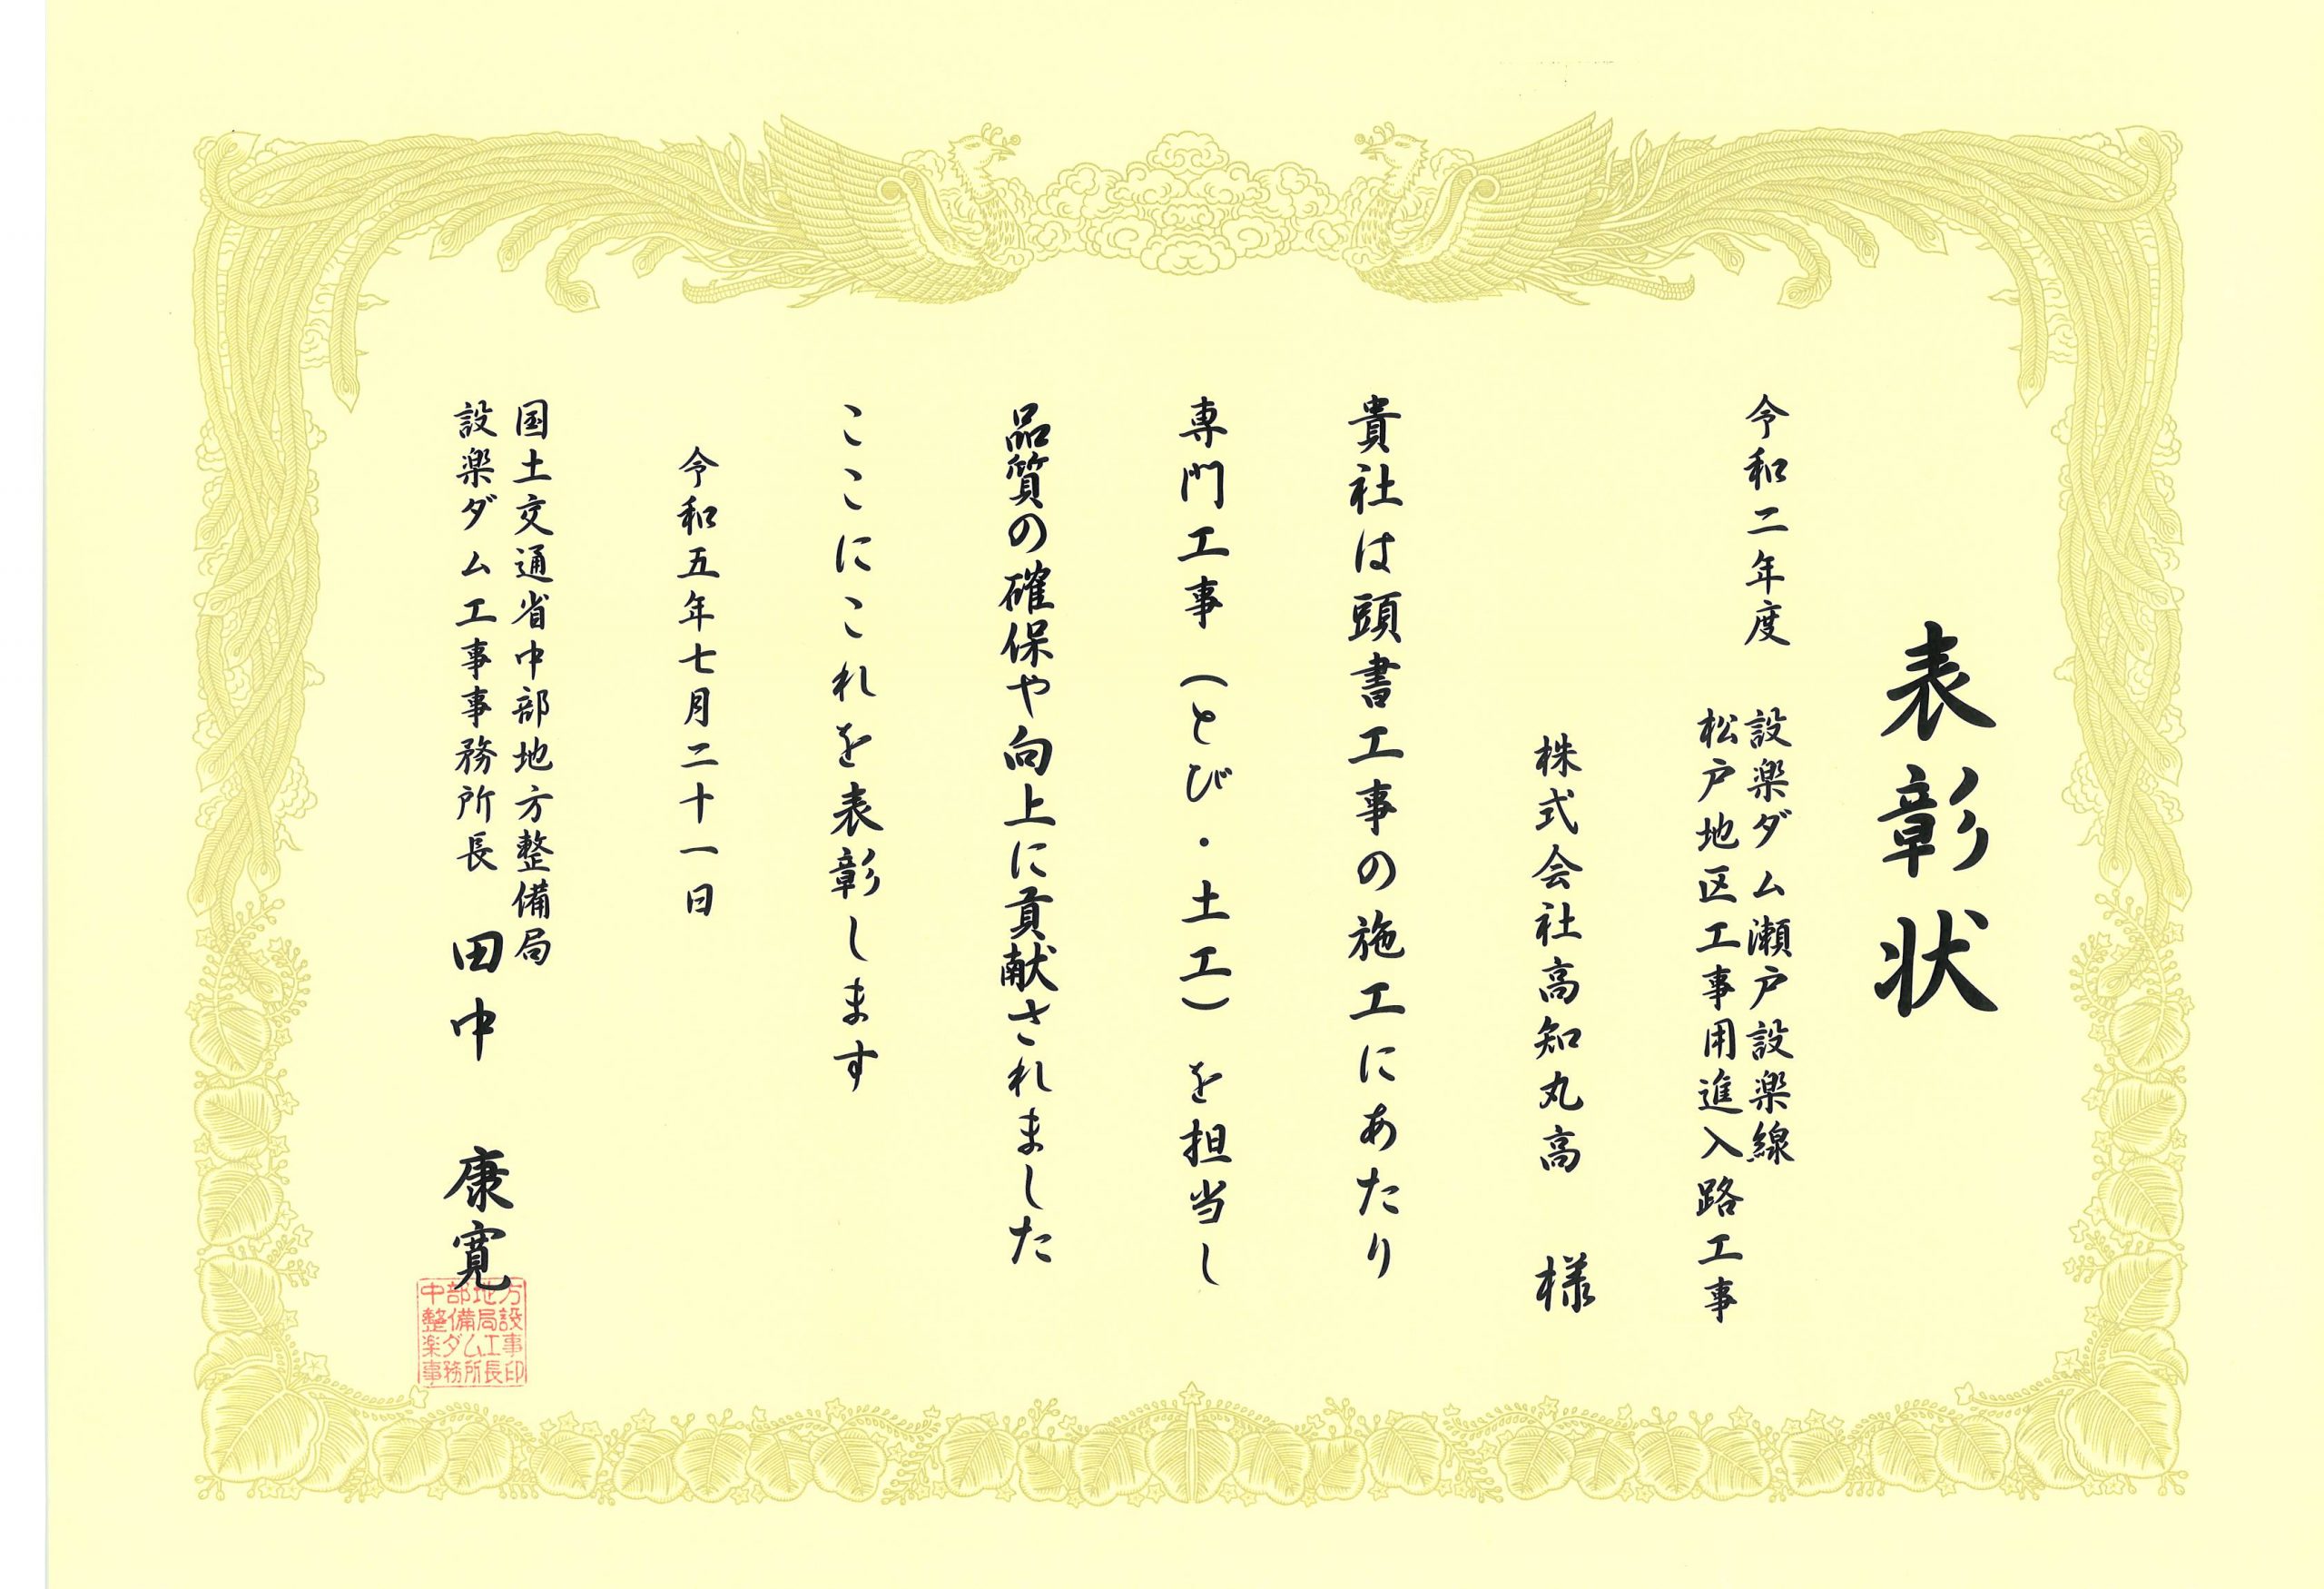 表彰状
令和二年度 設楽ダム瀬戸設楽線
松戸地区工事用進入路工事
株式会社高知丸高 様
貴社は頭書工事の施工にあたり
専門工事（とび・土工）を担当し
品質の確保や向上に貢献されました
ここにこれを表彰します
令和五年七月二十一日
国土交通省中部地方整備局
設楽ダム工事事務所長 田中 康寛
中部地方
整備局設
楽ダム工事
事務所長印